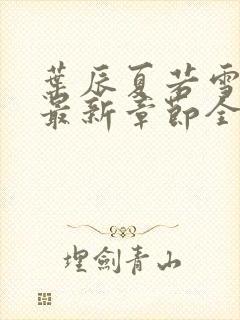 葉辰夏若雪
最新章節全
埋劍青山